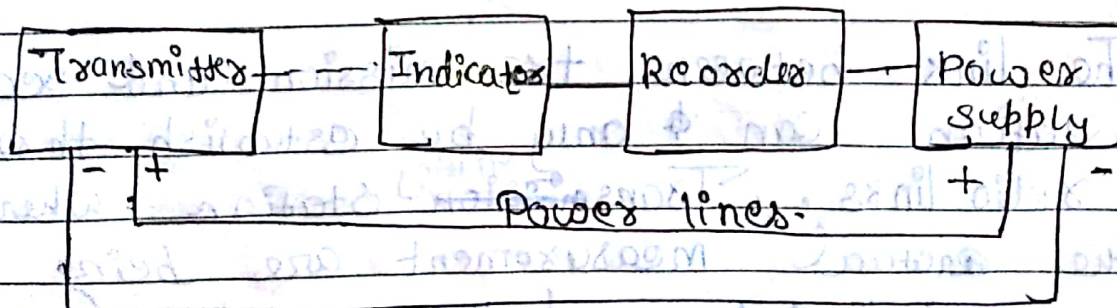 Transmitter Indicator Reorder Power
supply
- + + -
Power lines.